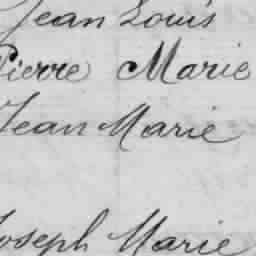 Jean Louis
Pierre Marie
Jean Marie
Joseph Marie